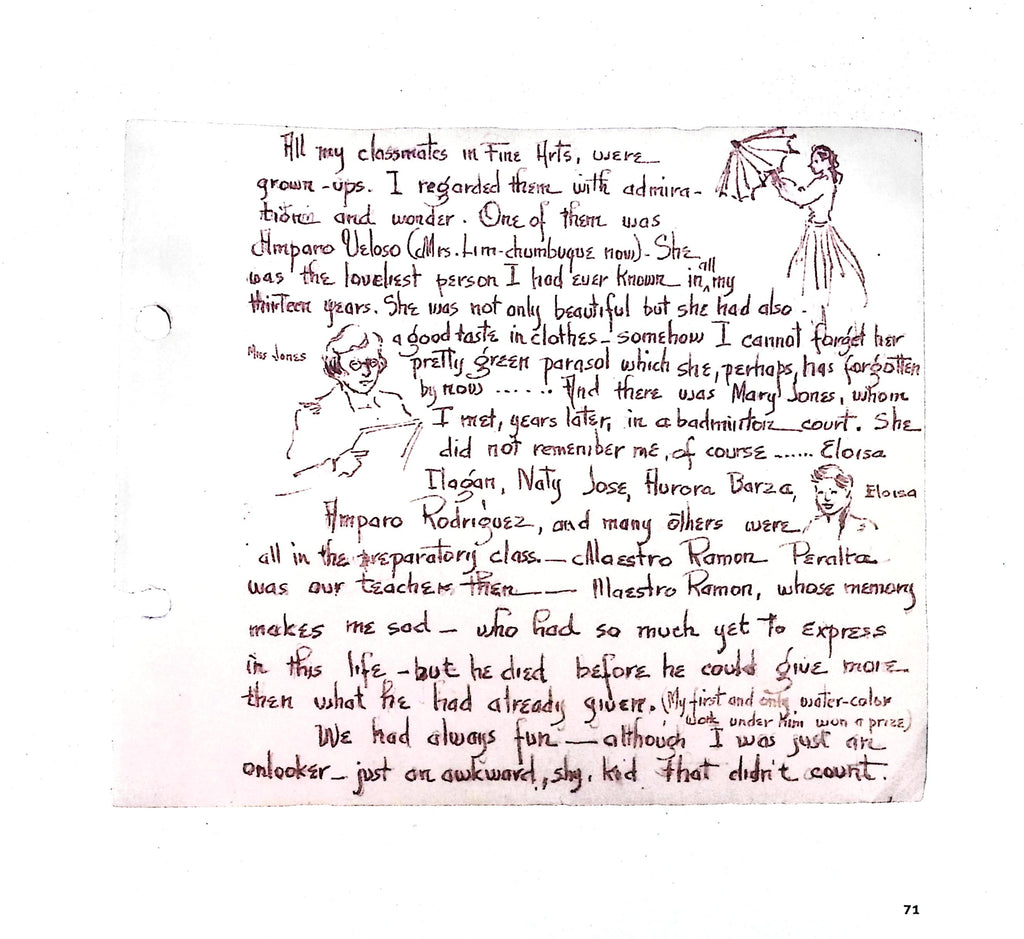 All my classmates in Fine Arts, were
grown-ups. I regarded them with admira-
tion and wonder. One of them was
Amparo Veloso (Mrs. Lim-chumbuque now). She
was the loveliest person I had ever known in all my
thirteen years. She was not only beautiful but she had also
a good taste in clothes - somehow I cannot forget her
Miss Jones
pretty green parasol which she, perhaps, has forgotten
by now ...... And there was Mary Jones, whom
I met, years later, in a badminton court. She
did not remember me, of course ...... Eloisa
Ilagan, Naty Jose, Aurora Barza,
Eloisa
Amparo Rodriguez, and many others were
all in the preparatory class. — Maestro Ramon Peralta
was our teacher then —— Maestro Ramon, whose memory
makes me sad — who had so much yet to express
in this life - but he died before he could give more
then what he had already given. (My first and only water-color
work under him won a prize)
We had always fun — although I was just an
onlooker - just an awkward, shy, kid that didn't count.
71